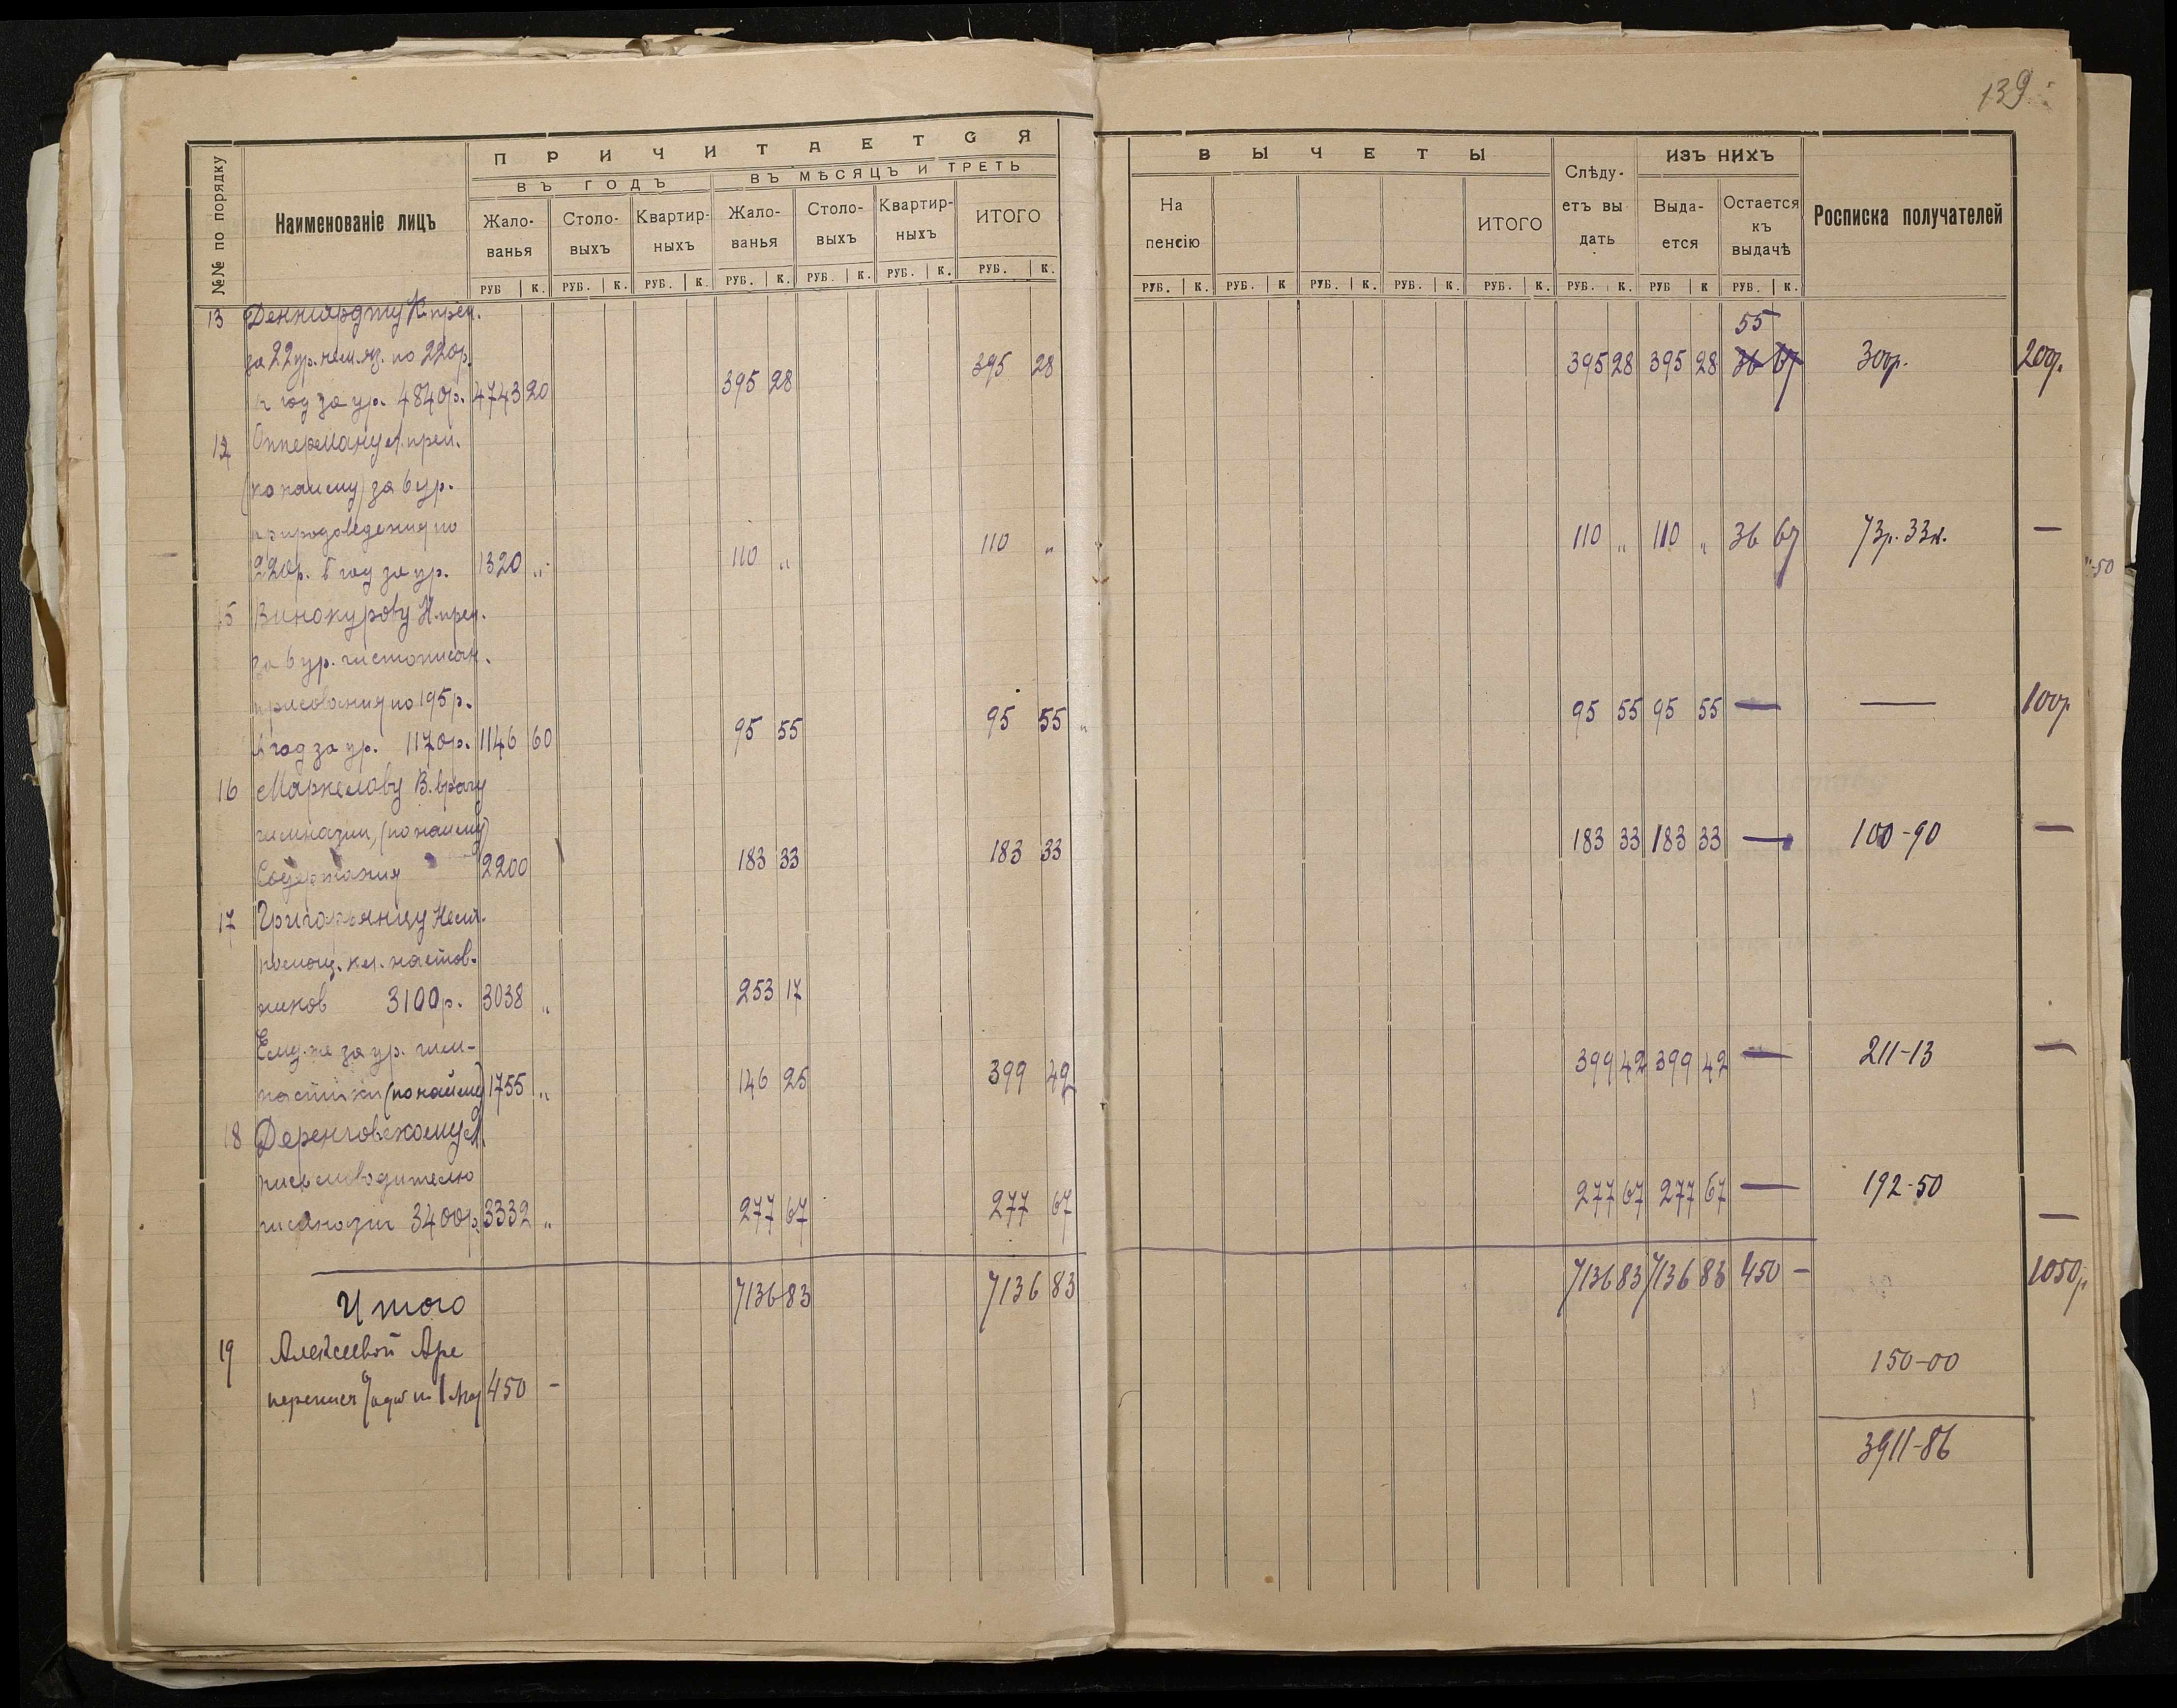 139
№№ по порядку
Наименованіе лицъ
ПРИЧИТАЕТСЯ
ВЪ ГОДЪ
ВЪ МѢСЯЦЪ И ТРЕТЬ
Жало-
ванья
Столо-
выхъ
Квартир-
ныхъ
Жало-
ванья
Столо-
выхъ
Квартир-
ныхъ
ИТОГО
РУБ К. РУБ. К. РУБ. К. РУБ. К. РУБ. К. РУБ. К. РУБ. К.
ВЫЧЕТЫ
На
пенсію
ИТОГО
Слѣду-
етъ вы
дать
ИЗЪ НИХЪ
Выда-
ется
Остается
къ
выдачѣ
Росписка получателей
РУБ. К. РУБ. К РУБ. К. РУБ. К. РУБ. К. РУБ. К. РУБ К РУБ. К.
13 К. преп.
55
за 22 ур. нем. яз. по 220р. 395 28 395 28 395 28 36 67 300р. 200р.
в год за ур. 4840р. 4743 20 395 28
Опперману А. преп.
(по найму) за 6 ур.
природоведения по 110 „ 110 „ 110 „ 36 67 73р. 33к. —
220р. в год за ур. 1320 „ 110 „
„-50
15 Винокурову Н. преп.
за 6 ур. чистописан.
и рисования по 195р. 95 55 95 55 95 55 — — 100р.
в год за ур. 1170р. 1146 60 95 55
16 Маркелову В. врачу
гимназии, (по найму) 183 33 183 33 183 33 — 100-90 —
Содержания 2200 183 33
17 Григорьянцу
помощ. кл. настав-
ников 3100р. 3038 „ 253 17
Ему-же за ур. гим- 399 42 399 42 399 42 — 211-13 —
настики (по найму) 1755 „ 146 25
18 Деренговскому А.
письмоводителю 277 67 277 67 — 192-50
гимназии 3400р. 3332 „ 277 67 277 67 —
Итого 7136 83 7136 83 7136 83 7136 83 450 — 1050р.
19 Алексеевой 150-00
450 -
3911-86